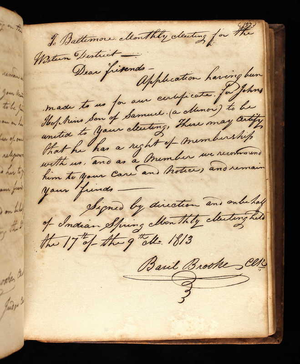 To Baltimore Monthly Meeting for the
Western District—
Dear friends—
Application having been
made to us for our certificate for Johns
Hopkins Son of Samuel (a Minor) to be
united to your Meeting, These may Certify
that he has a right of Membership
with us. and as a Member we recommend
him to your Care and Notice and remain
your friends—
Signed by direction and on behalf
of Indian Spring Monthly Meeting held
the 17th of the 9th Mo 1813
Basil Brooke Clk